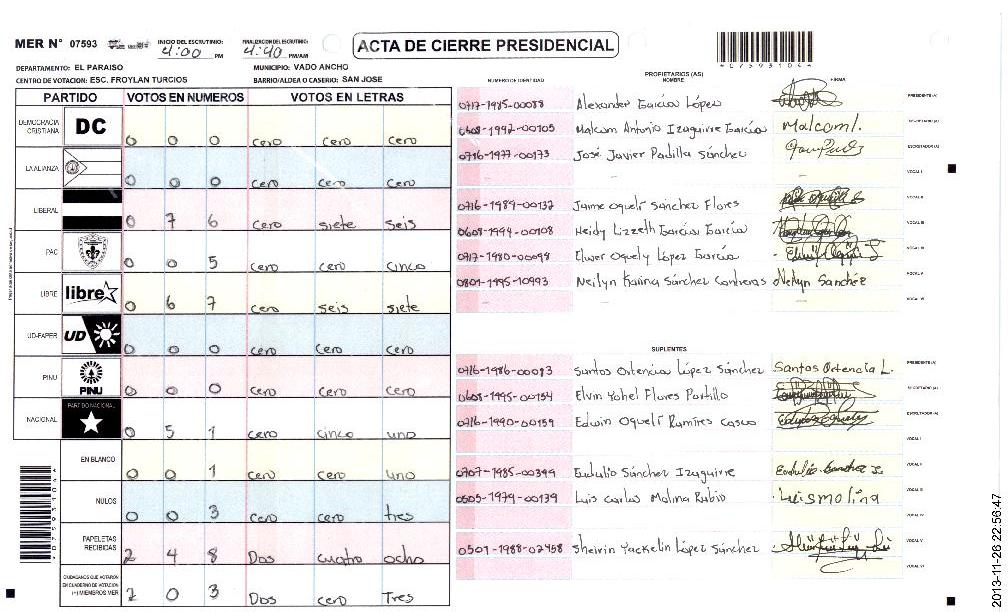 MER N° 07593
INICIO DEL ESCRUTINIO: 4:00 PM
FINALIZACION DEL ESCRUTINIO: 4:40 PM/AM
ACTA DE CIERRE PRESIDENCIAL
DEPARTAMENTO: EL PARAISO MUNICIPIO: VADO ANCHO
CENTRO DE VOTACION: ESC. FROYLAN TURCIOS BARRIO/ALDEA O CASERIO: SAN JOSE
PARTIDO VOTOS EN NUMEROS VOTOS EN LETRAS
DEMOCRACIA CRISTIANA DC 0 0 0 cero cero cero
LA ALIANZA 0 0 0 cero cero cero
LIBERAL 0 7 6 cero siete seis
PAC 0 0 5 cero cero cinco
LIBRE libre 0 6 7 cero seis siete
UD-FAPER UD 0 0 0 cero cero cero
PINU PINU 0 0 0 cero cero cero
NACIONAL PARTIDO NACIONAL 0 5 1 cero cinco uno
EN BLANCO 0 0 1 cero cero uno
NULOS 0 0 3 cero cero tres
PAPELETAS RECIBIDAS 2 4 8 Dos cuatro ocho
CIUDADANOS QUE VOTARON
EN CUADERNO DE VOTACION
(+) MIEMBROS MER 2 0 3 Dos cero Tres
PROPIETARIOS (AS)
NUMERO DE IDENTIDAD NOMBRE FIRMA
0717-1985-00088 Alexander García López PRESIDENTE (A)
0608-1992-00105 Malcom Antonio Izaguirre García Malcom I. SECRETARIO (A)
0716-1977-00173 José Javier Padilla Sánchez ESCRUTADOR (A)
- - - VOCAL I
0716-1989-00137 Jaime Oquelí Sánchez Flores VOCAL II
0608-1994-00108 Heidy Lizzeth García García VOCAL III
0717-1980-00098 Elwer Oquely López García
0801-1995-10993 Neilyn Karina Sánchez Contreras Nelyn Sanchéz VOCAL V
- - - VOCAL VI
SUPLENTES
0716-1986-00093 Santos Ortencia López Sánchez Santos Ortencia L. PRESIDENTE (A)
0608-1995-00154 Elvin Yohel Flores Portillo SECRETARIO (A)
0716-1990-00159 Edwin Oquelí Ramires Casco ESCRUTADOR (A)
VOCAL I
0707-1985-00399 Eudulio Sánchez Izaguirre Eudulio Sanchez I. VOCAL II
0605-1979-00139 Luis Carlos Molina Rubio Luis molina VOCAL III
VOCAL IV
0501-1988-02458 Sheirin Yackelin López Sánchez VOCAL V
VOCAL VI
075931044
2013-11-26 22:56:47